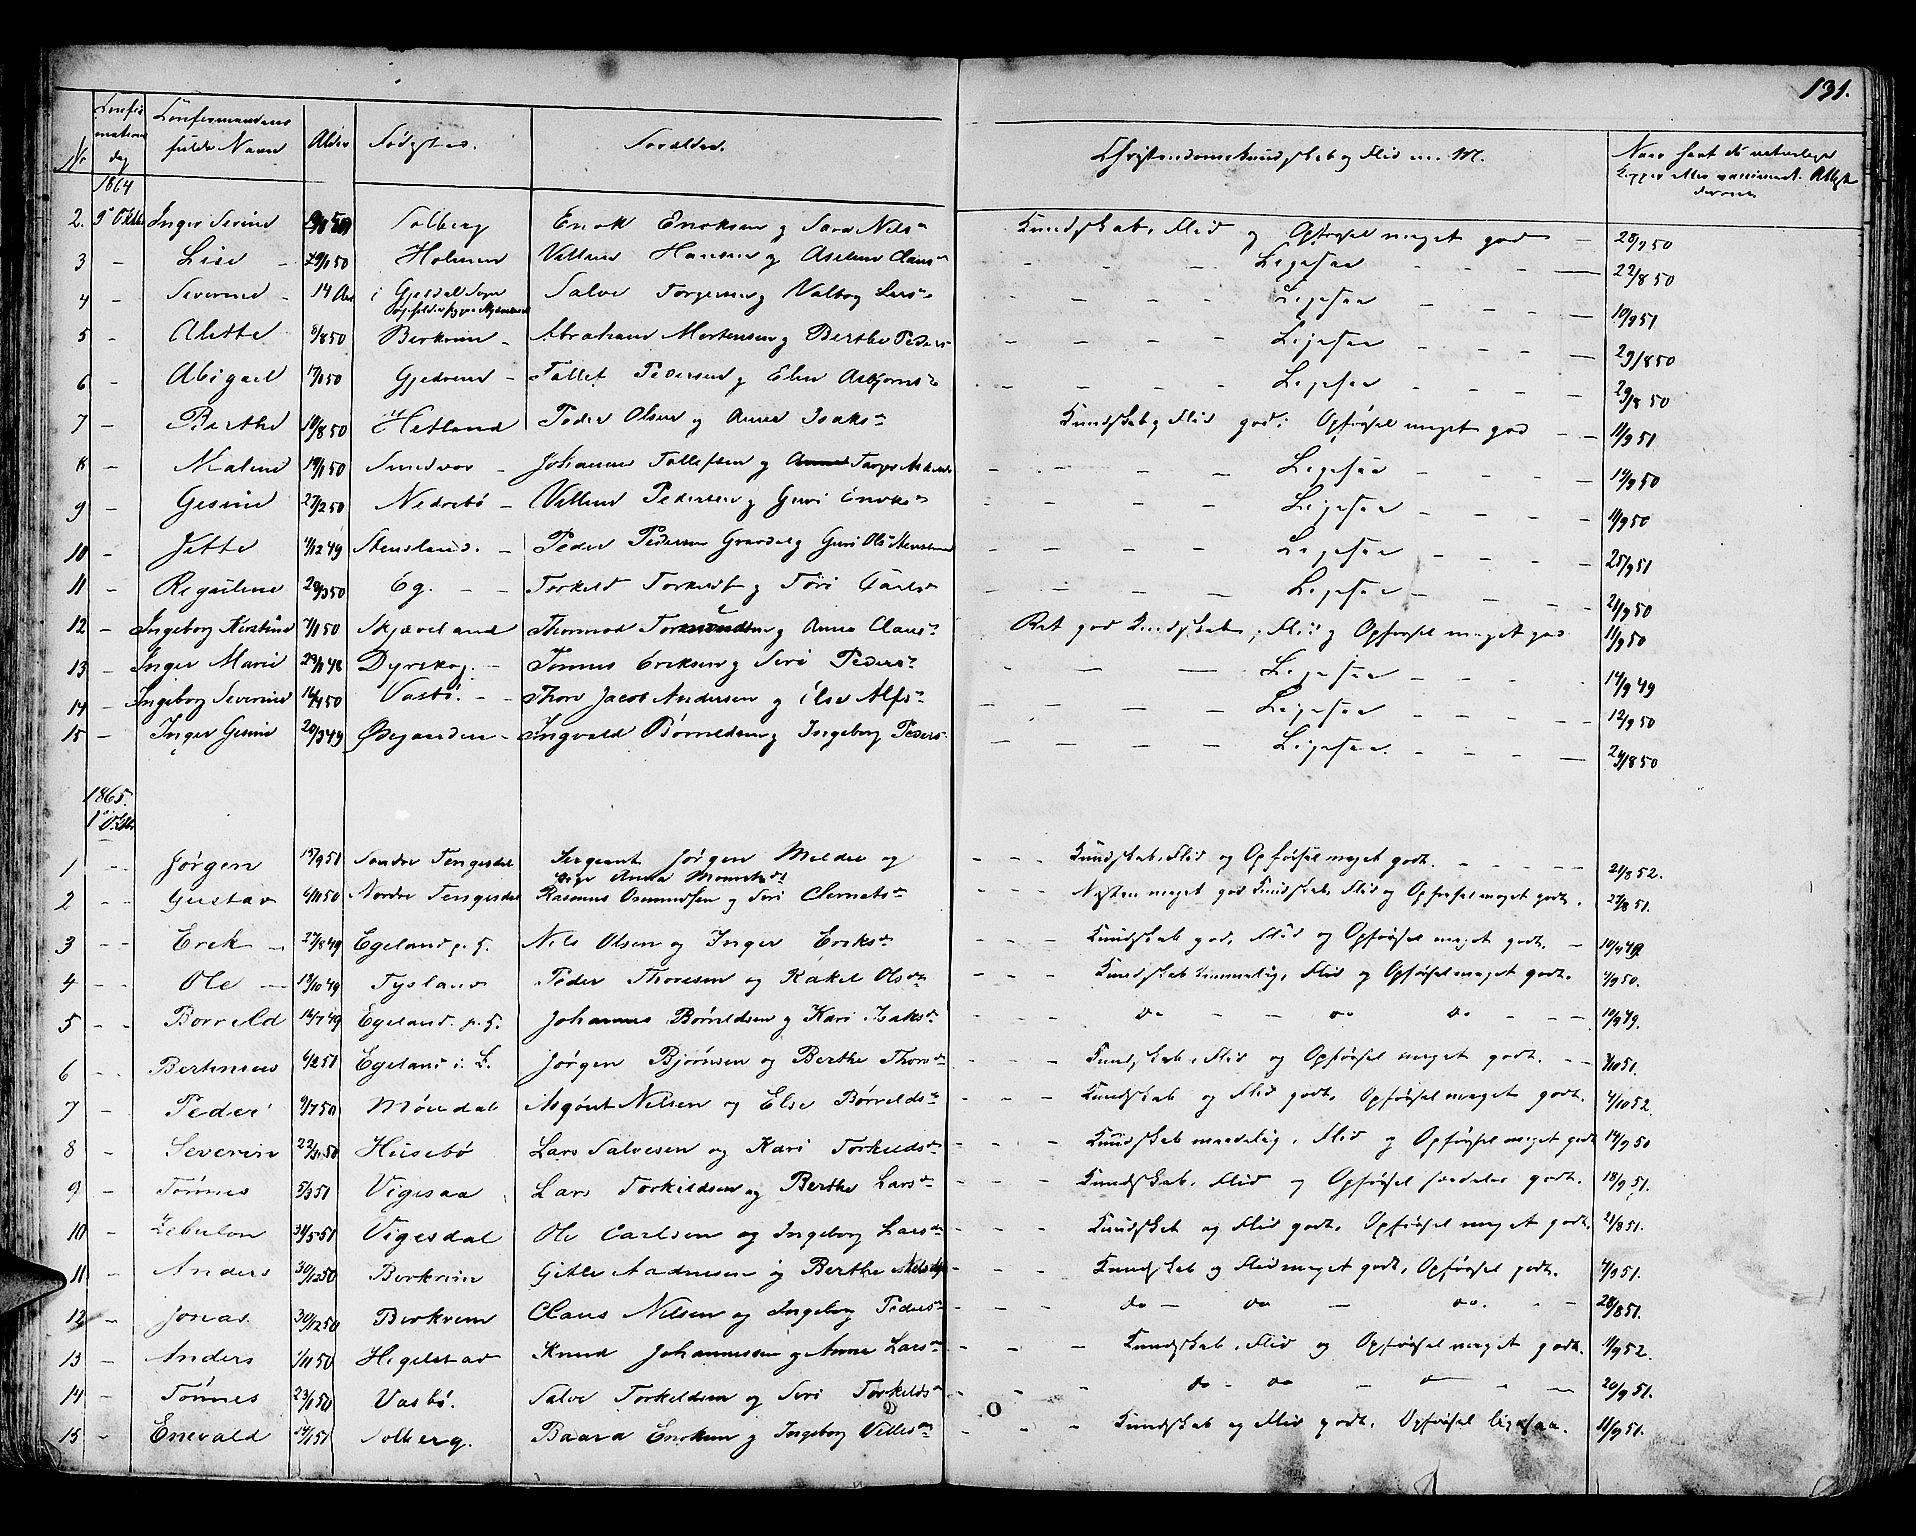 131.
Nr
Confir
mations
dag
Confirmandens
fulde Navn
Alder
Fødested
Forældre
Christendomskundskab og Flid m. M.
Naar havt de naturlige
Kopper eller vaccineret. Attest
1864
2. 9 Oktbr Inger Serine Solberg Enok Enoksen og Sara Nils Kundskab, Flid og Opførsel meget god 28/9 50
3 — Lise — Holmen Villum Hansen og Aselene Claus Ligesaa 22/8 50
4 — Severine — 14 Aar i Gjesdal Sogn Salve Torgersen og Valbog Lars Ligesaa 10/9 51
5 — Alette 8/8 50 Berkrem — Abraham Mortensen og Berthe Peders Ligesaa 29/8 50
6 — Abigael 17/1 50 Gjedrem — Tollef Pedersen og Elen Asbjørns Ligesaa 29/8 50
7 — Berthe 10/8 50 Hetland Peder Olsen og Anna Isaks Kundskab, Flid god, Opførsel meget god 11/9 51
8 — Malene 19/1 50 Sundvor — Johannes Tollefsen og Ligesaa 14/9 50
9 — Gesine 27/2 50 Nedrebø — Villum Pedersen og Guri Enoks Ligesaa 11/9 50
10 — Jette 4/12 49 Stensland. — Peder Pedersen Gravdal og Guri Ols Stensland Ligesaa 25/9 51
11 — Reguline 20/3 50 Eg. — — Torkeld Torkelds og Siri Carls Ligesaa 21/9 50
12 — Ingeborg Kirstine 7/1 50 Skjæveland Thormod Tormundsen og Anna Claus Ret god Kundskab, Flid og Opførsel meget god 11/9 50
13 — Inger Marie 29/1 48 Dyrskog. — Tønnes Eriksen og Siri Peders Ligesaa 14/9 49
14 — Ingeborg Severine 16/4 50 Vasbø. — Thore Jacob Andersen og Else Alfs Ligesaa 12/9 50
15 — Inger Gesine 20/3 49 Øvegaarden — Ingvald Børreldsen og Ingeborg Peders Ligesaa. 24/8 50
1865.
1 Oktbr
1 — Jørgen 15/9 51 Søndre Tengesdal Sergeant Jørgen Melder og Anna Kundskab, Flid og Opførsel meget godt. 21/8 52.
2 — Gustav 6/11 50 Nordre Tengesdal Rasmus Osmundsen og Siri Clemets Næsten meget god Kundskab, Flid og Opførsel meget godt. 27/8 51.
3 — Erek 27/8 49 Egeland p. G. Nils Olsen og Inger Eriks Kundskab god, Flid og Opførsel meget godt. 10/9 49.
4 — Ole 13/10 49 Tysland Peder Thorsen og Rakel Ols Kundskab temmelig, Flid og Opførsel meget godt. 4/9 50.
5 — Borreld 16/7 49 Egeland. p. G. Johannes Børreldsen og Kari Isaks do — do do 10/9 49.
6 — Bertinius 6/2 51 Egeland i. L. Jørgen Bjørnsen og Berthe Thors Kundskab, Flid og Opførsel meget godt. 3/10 51.
7 — Peder 9/7 50 Møredal Asgout Nilsen og Else Børrelds Kundskab og Flid godt, Opførsel meget godt. 4/10 52.
8 — Severin Husebø Lars Salvesen og Kari Torkelds Kundskab maadelig, Flid og Opførsel meget godt 14/9 50
9 — Tønnes 5/3 51 Vigesaa Lars Torkildsen og Berthe Lars Kundskab, Flid og Opførsel særdeles godt. 18/9 51.
10 — Zebulon 31/5 51 Vigesdal Ole Carlsen og Ingeborg Lars Kundskab og Flid godt, Opførsel meget godt. 21/8 51.
11 — Anders 30/12 50 Berkrem Gitle Aadnesen og Berthe Nilsd Kundskab og Flid meget godt, Opførsel godt. 4/9 51.
12 — Jonas 30/12 50 Berkrem Claus Nilsen og Ingeborg Peders do — do — do. 28/8 51.
13 — Anders 1/11 50 Hegelstad Knud Johannessen og Anna Lars Kundskab, Flid og Opførsel meget godt. 11/9 52.
14 — Tønnes 23/1 50 Vasbø. Salve Torkeldsen og Siri Torkelds do — do — do 20/9 51.
15 — Enevald 14/1 51 Solberg. Baard Enoksen og Ingeborg Villes Kundskab og Flid godt. Opførsel ligesaa. 11/9 51.